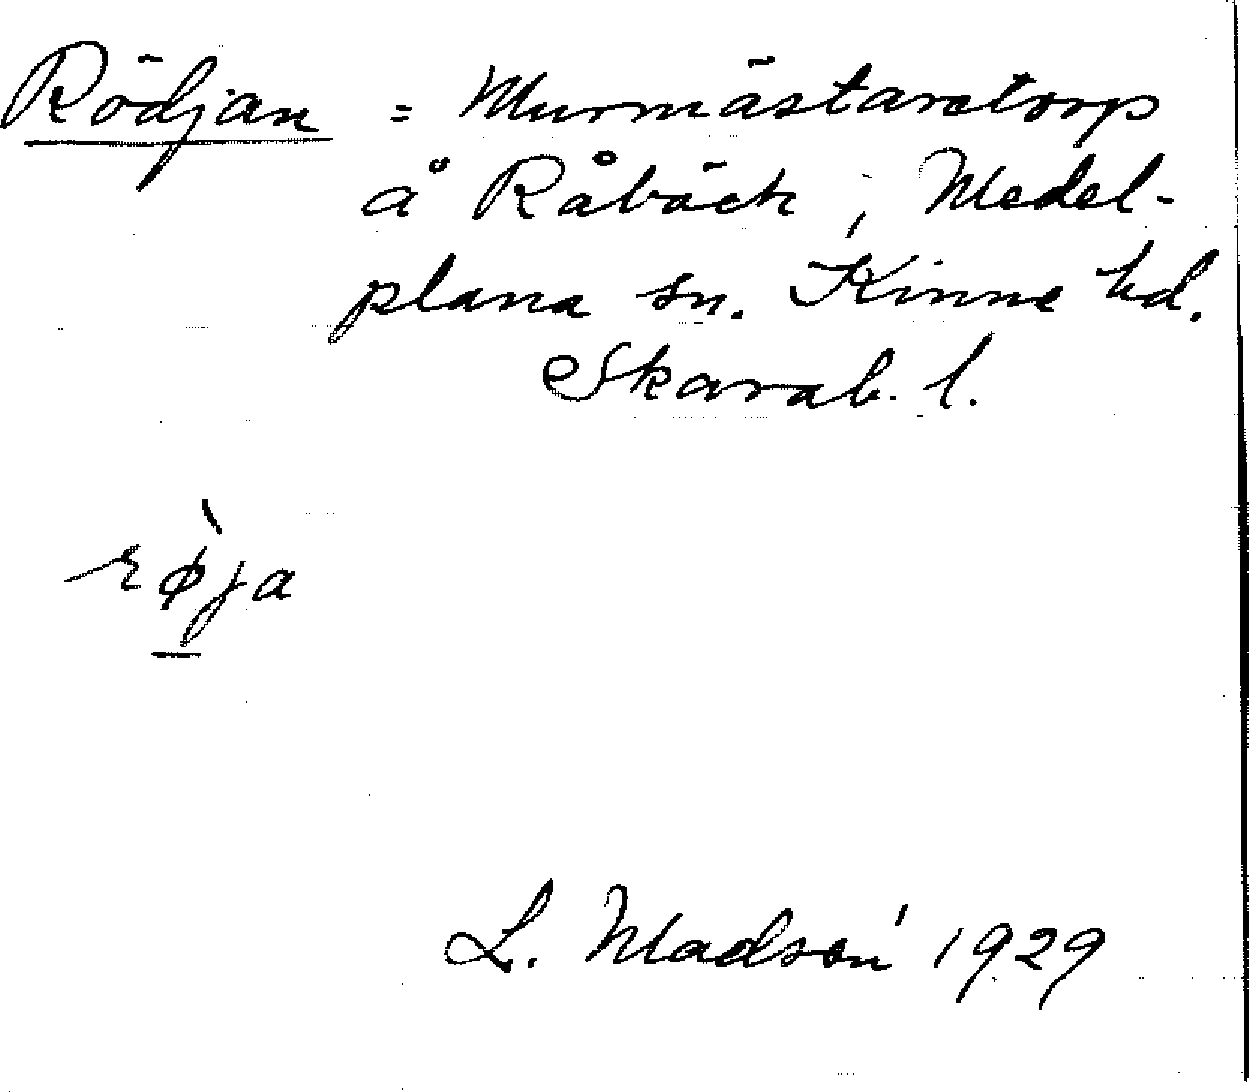 Rödjan = Murmästaretorp
å Råbäck, Medel-
plana sn. Kinne hd.
Skarab. l.
rø̀ja
L. Madsén 1929